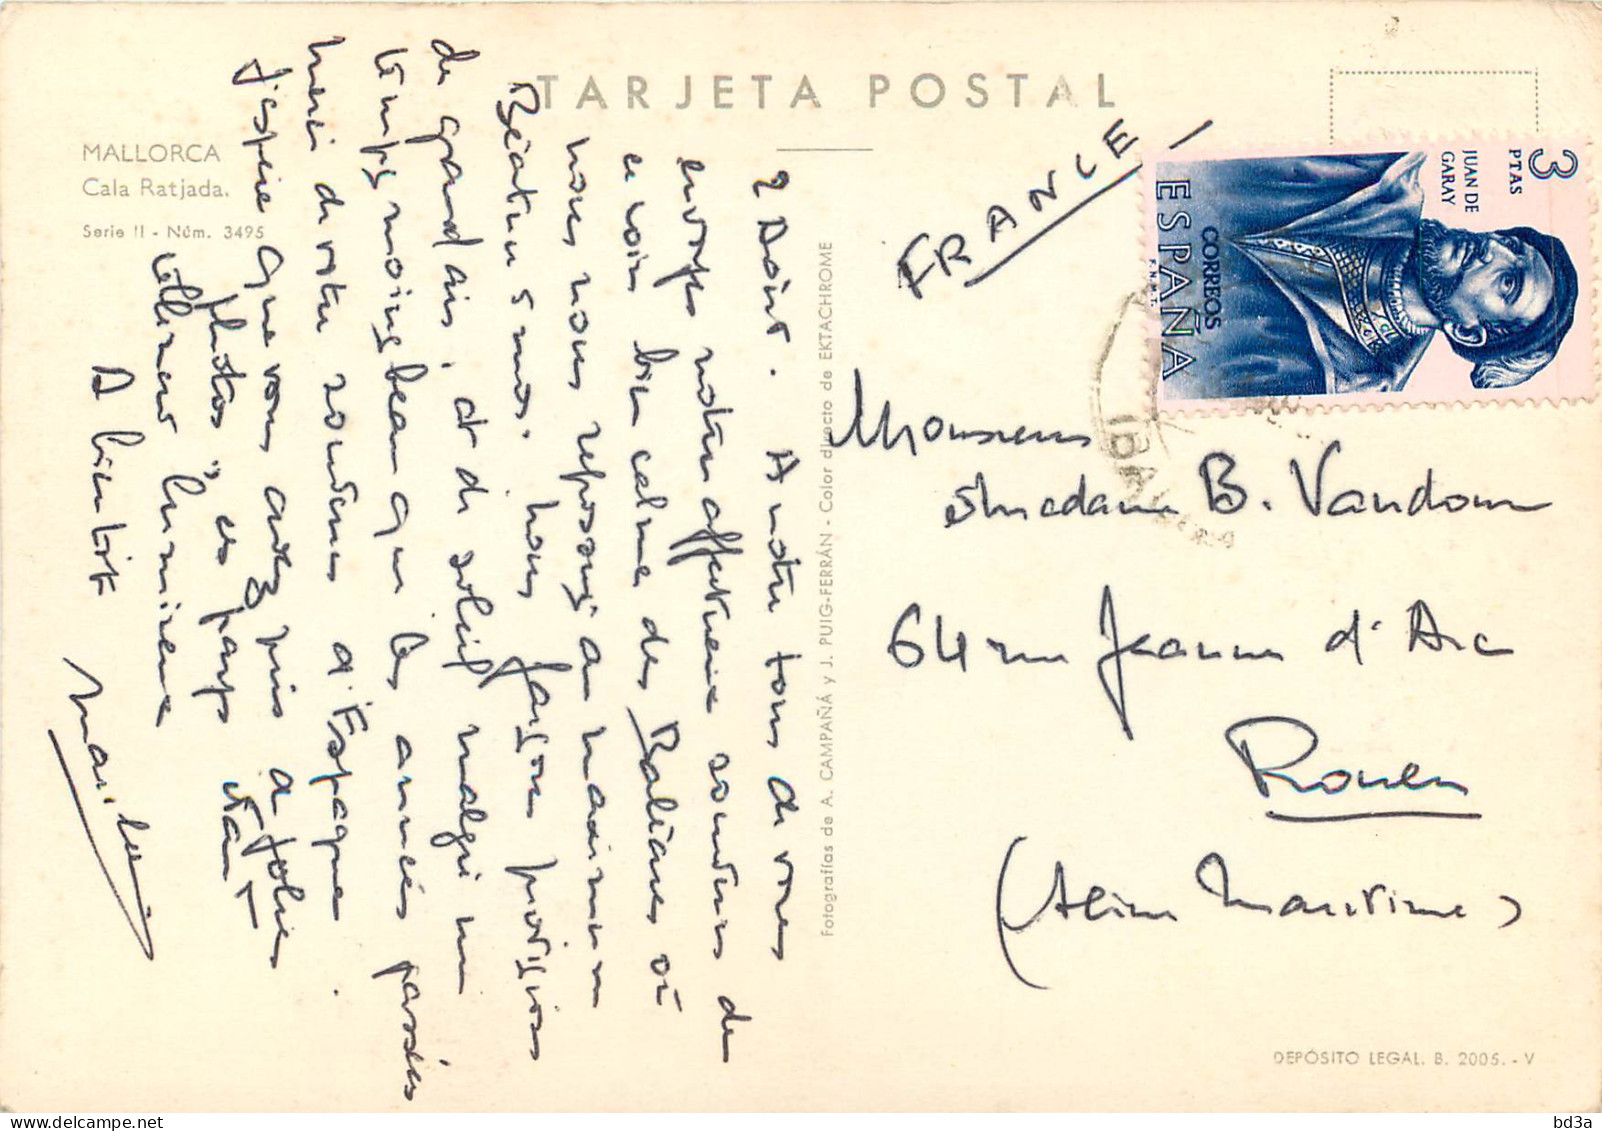 TARJETA POSTAL
MALLORCA
Cala Ratjada.
Serie II - Núm. 3495
2 Août. A votre tour de vous
envoyer notre affectueux souvenir de
ce coin bien calme des Baléares où
nous nous reposons au maximum
Béatus nous. Nous faisons provision
de grand air, et de soleil malgré un
temps moins beau que les années passées
Merci de votre souvenir d'Espagne.
J'espère que vous avez pris de jolies
photos, ce pays étant
tellement lumineux
A bientôt
Fotografías de A. CAMPAÑÁ y J. PUIG-FERRÁN - Color directo de EKTACHROME
FRANCE
3 PTAS
JUAN DE GARAY
CORREOS
ESPAÑA
F.N.M.T.
Monsieur
et Madame B. Vandoum
64 rue Jeanne d'Arc
Rouen
(Seine Maritime)
DEPÓSITO LEGAL. B. 2005. - V
bd3a